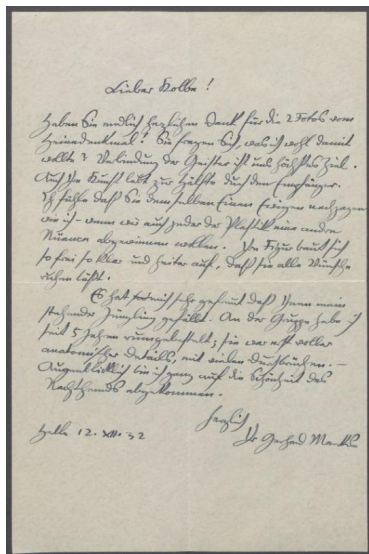 Lieber Kolbe!
Haben Sie endlich herzlichen Dank für die 2 Fotos vom
Heinedenkmal! Sie fragen sich, was ich wohl damit
wollte? Verbindung der Geister ist uns höchstes Ziel.
Auch die Kunst lebt zur Hälfte durch den Empfänger.
Ich fühle daß Sie demselben Einen Ewigen nachjagen
wie ich – wenn wir auch jeder der Plastik eine andre
Nuance abgewinnen wollen. Die Figur baut sich
so frei so klar und heiter auf, daß sie alle Wünsche
ruhen läßt.
Es hat mich sehr gefreut daß Ihnen mein
stehender Jüngling gefällt. An der Gruppe habe ich
seit 5 Jahren rumgebastelt; sie war erst voller
anatomischer Details, mit vielen Durchbrüchen. –
Augenblicklich bin ich ganz auf die Schönheit des
abgekommen.
Herzlich
Ihr Gerhard Marcks
Halle 12. XII. 32